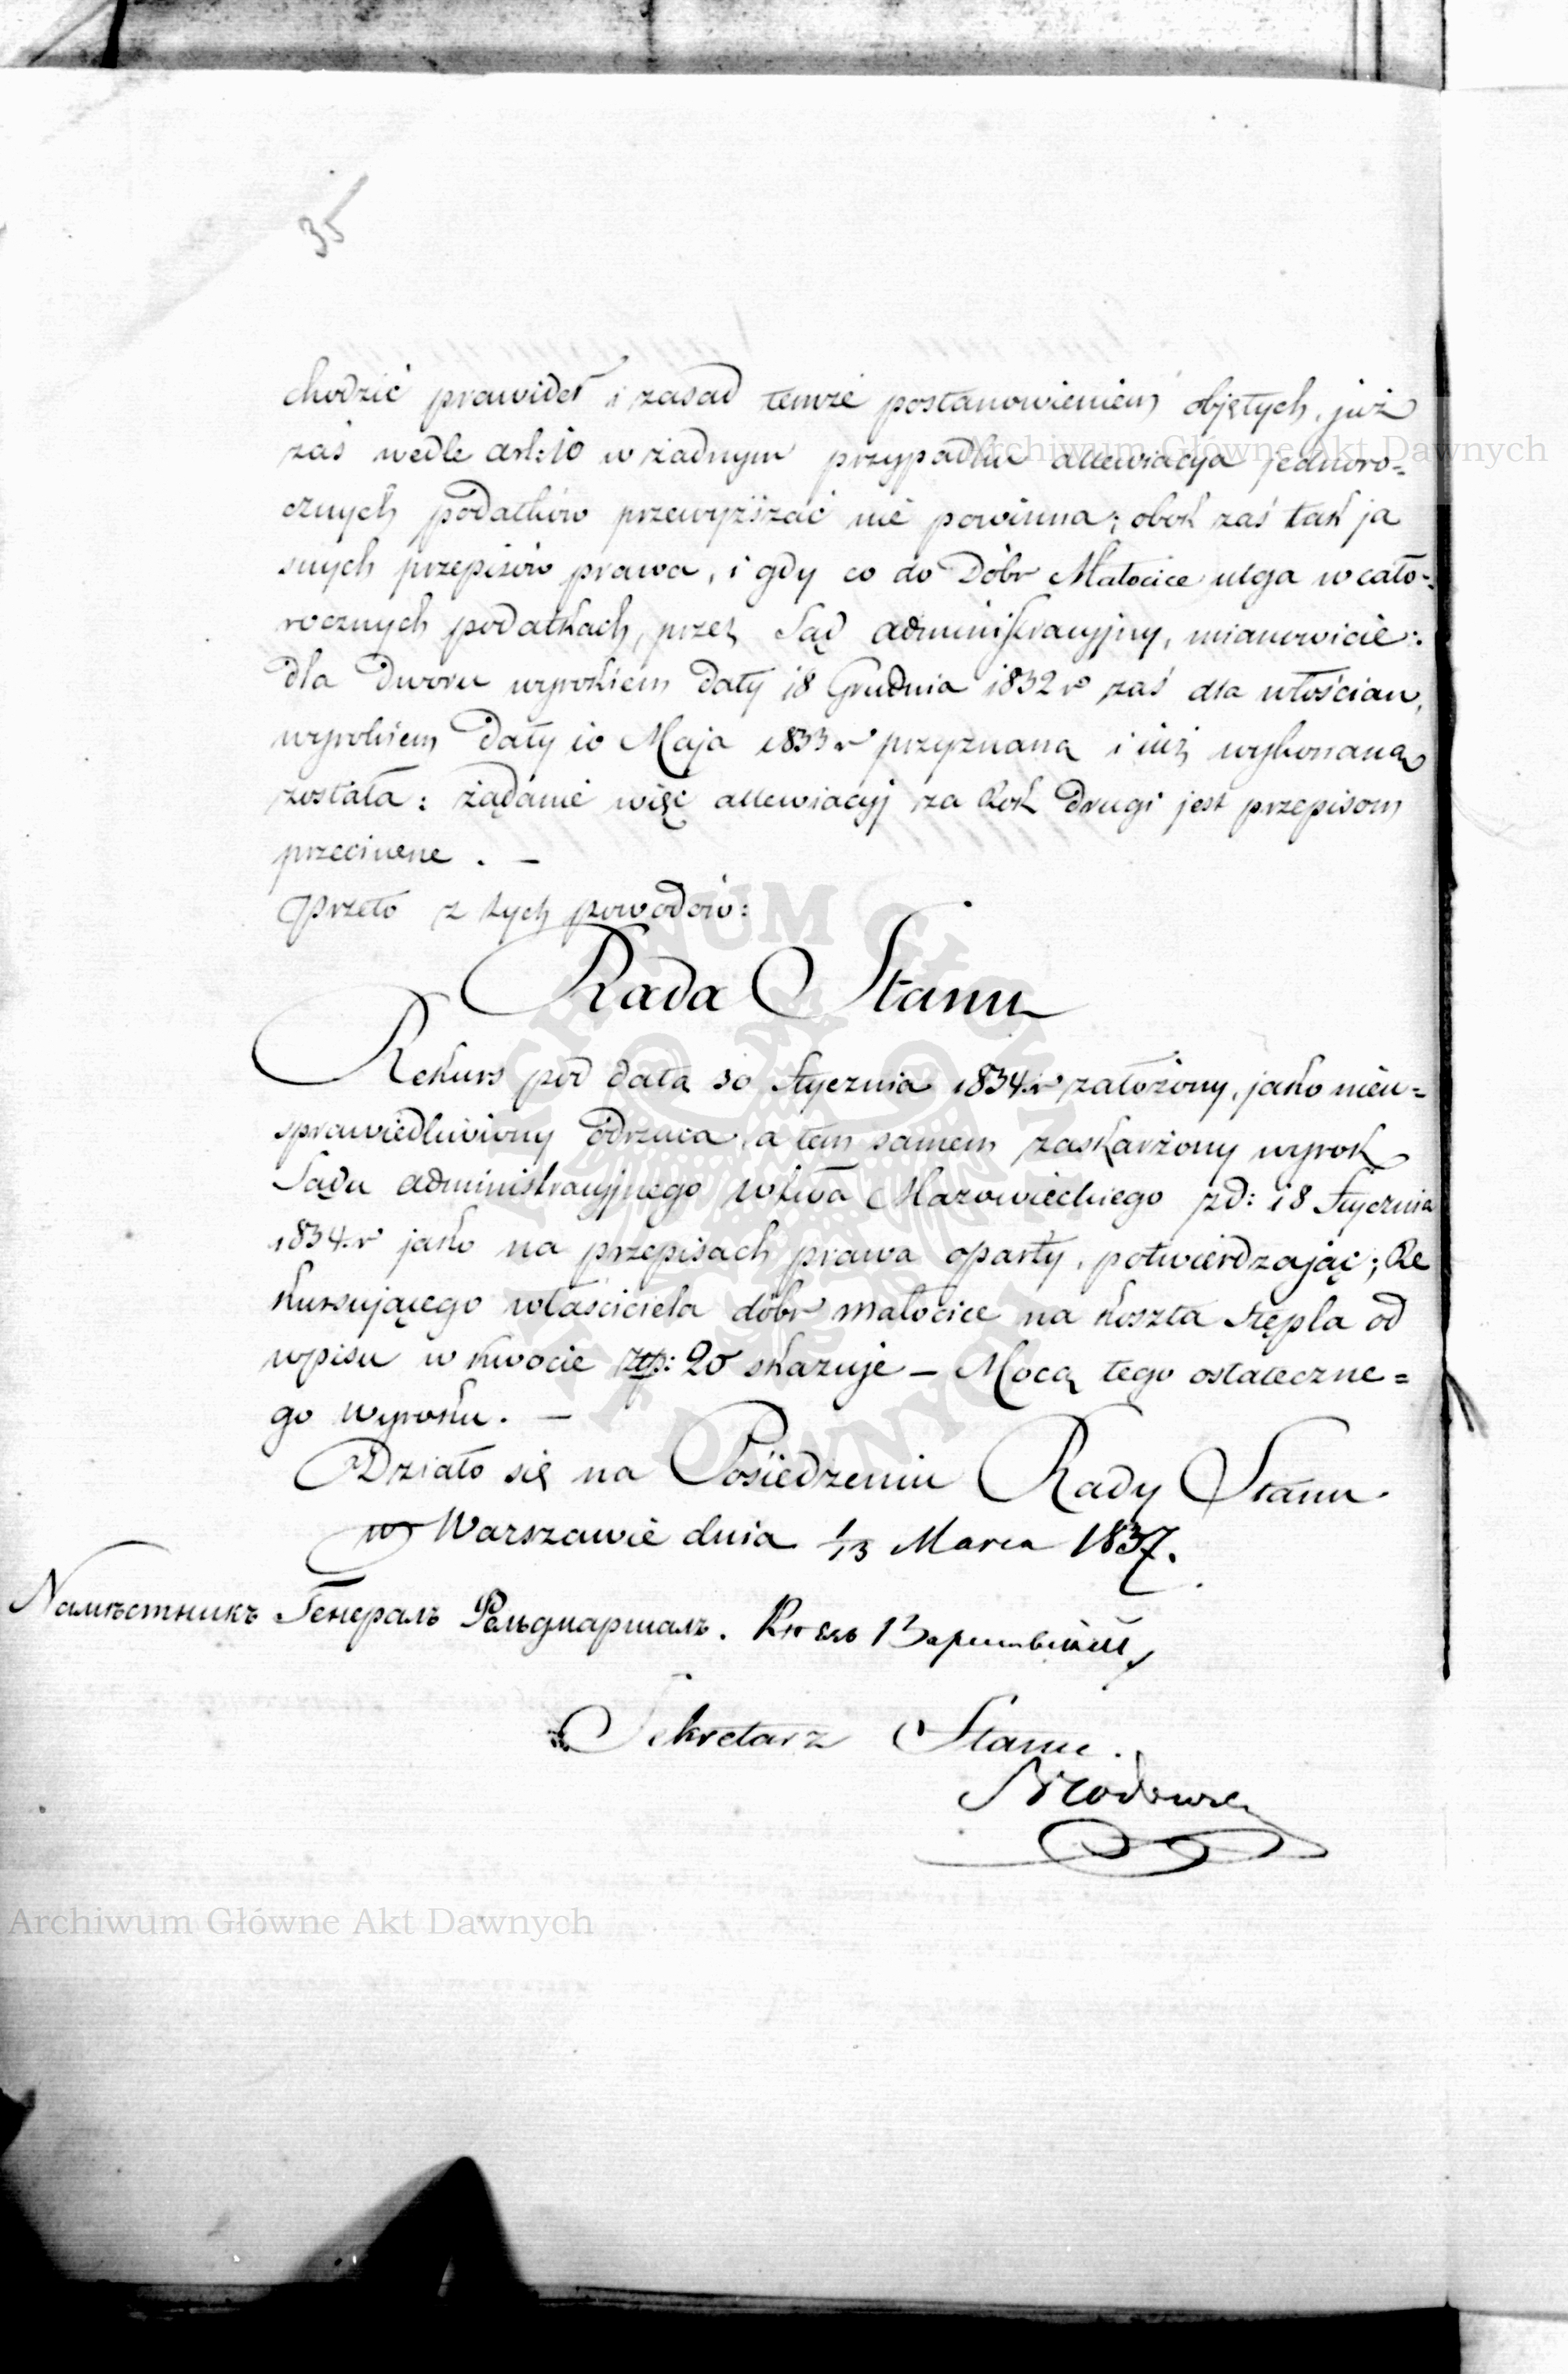 35
chodzić prawideł i zasad temże postanowieniem objętych, już
zaś wedle art: 10 w żadnym przypadku allewiacya jednoro=
cznych podatków przewyższać nie powinna; obok zaś tak ja
snych przepisów prawa, i gdy co do Dóbr Małocice ulga w cało=
rocznych podatkach, przez Sąd administracyjny, mianowicie:
dla Dworu wyrokiem daty 18 Grudnia 1832 r zaś dla włościan,
wyrokiem daty 10 Maja 1833 r przyznaną i już wykonaną
została: żądanie więc allewiacyj za Rok drugi jest przepisom
przeciwne. —
Przeto z tych powodów:
Rada Stanu
Rekurs pod datą 30 Stycznia 1834. r założony, jako nieu=
sprawiedliwiony odrzuca, a tem samem zaskarżony wyrok
Sądu administracyjnego wdztwa Mazowieckiego zd: 18 Stycznia
1834. r jako na przepisach prawa oparty, potwierdzając; Re
kursującego właściciela dóbr Małocice na koszta stępla od
wpisu w kwocie złp: 20 skazuje — Mocą tego ostateczne=
go wyroku. —
Działo się na Posiedzeniu Rady Stanu
w Warszawie dnia 1/13 Marca 1837.
Намѣстникъ Генералъ Фельдмаршалъ. Князь Варшавскій
Sekretarz Stanu.
Archiwum Główne Akt Dawnych
Archiwum Główne Akt Dawnych
ARCHIWUM GŁÓWNE AKT DAWNYCH